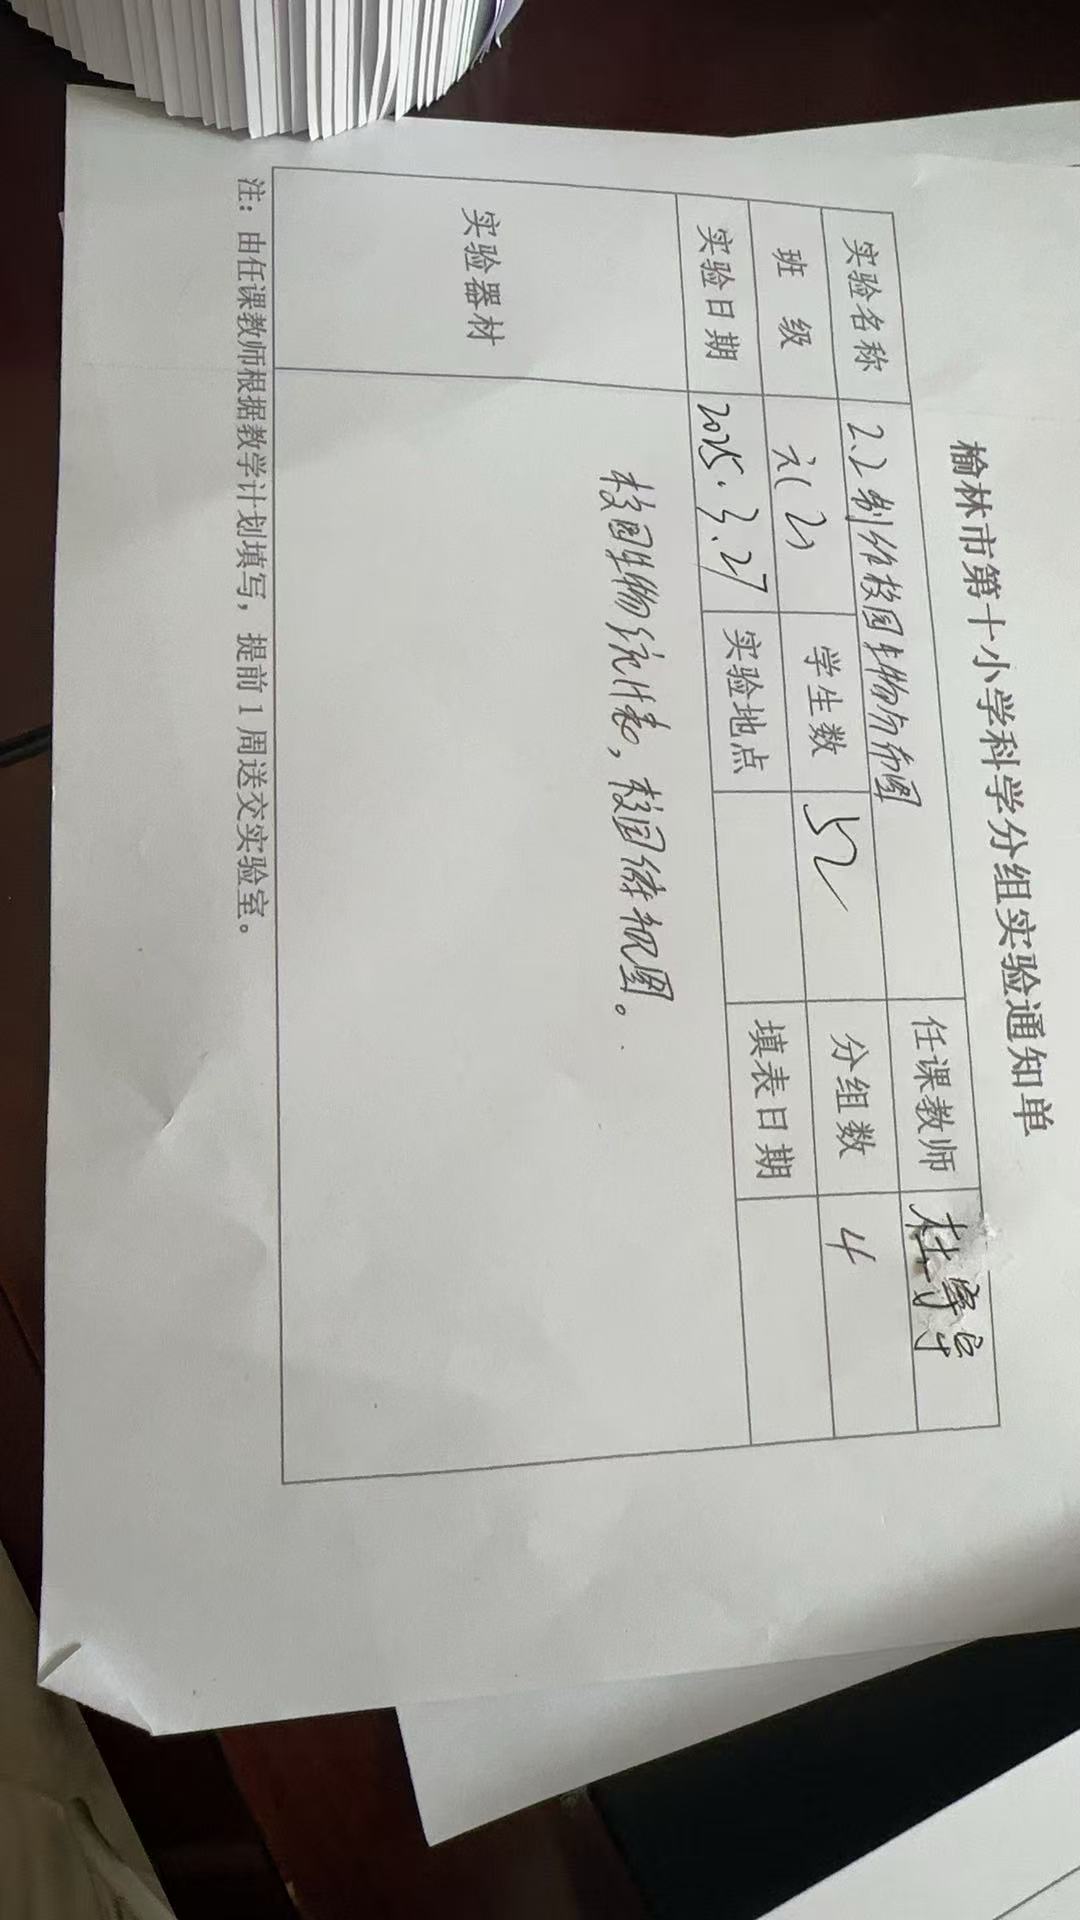 榆林市第十小学科学分组实验通知单
实验名称 2.2制作校园生物分布图 任课教师 杜
班 级 六(2) 学生数 52 分组数 4
实验日期 2025.3.27 实验地点 填表日期
实验器材 校园生物统计表，校园俯视图。
注：由任课教师根据教学计划填写，提前1周送交实验室。